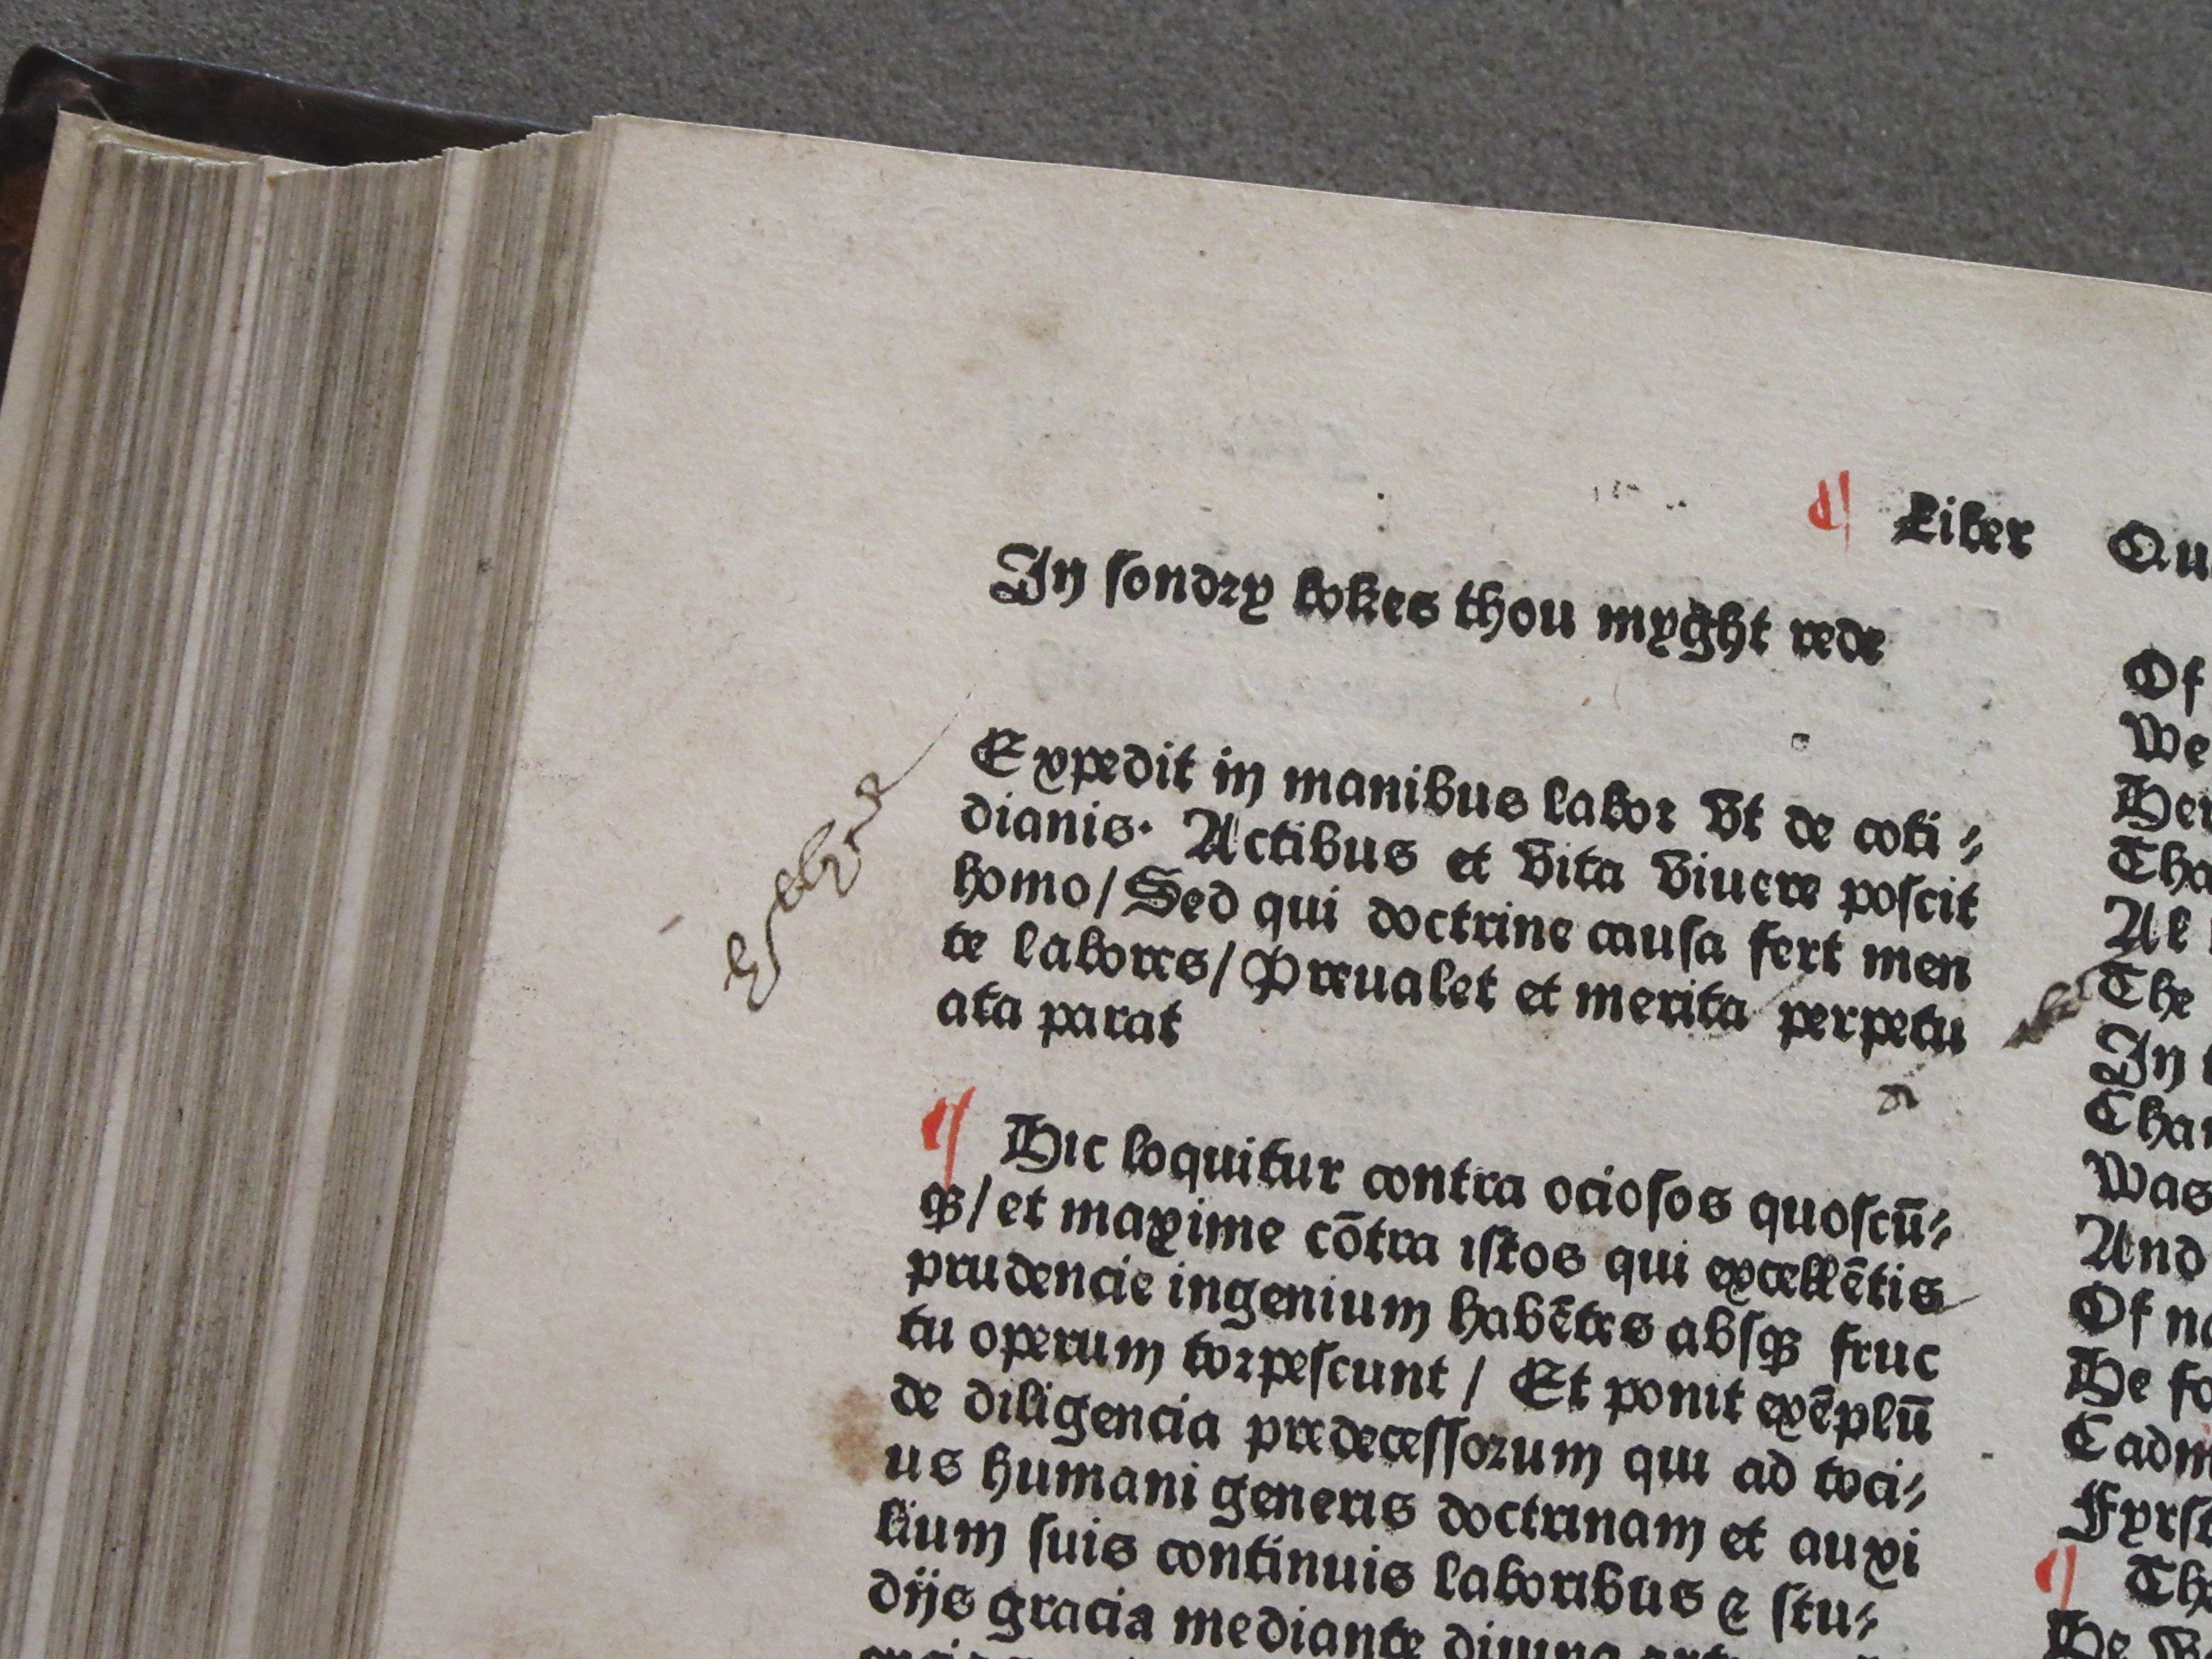 ¶ Liber Qu
In sondry bokes thou myght rede
Expedit in manibus labor vt de coti⸗
dianis. Actibus et vita viuere poscit
homo/ Sed qui doctrine causa fert men
te labores/ Preualet et merita perpetu
ata parat
¶ Hic loquitur contra ociosos quoscū⸗
qꝫ/ et maxime cōtra istos qui excellētis
prudencie ingenium habētes absqꝫ fruc
tu operum torpescunt / Et ponit exēplū
de diligencia predecessorum qui ad toci⸗
us humani generis doctrinam et auxi
lium suis continuis laboribus ⁊ stu⸗
dijs gracia mediante diuina
Of
We
Her
Tha
Al
The
In
Char
Was
And
Of no
He fo
Cadm
Fyrst
¶ Th
He